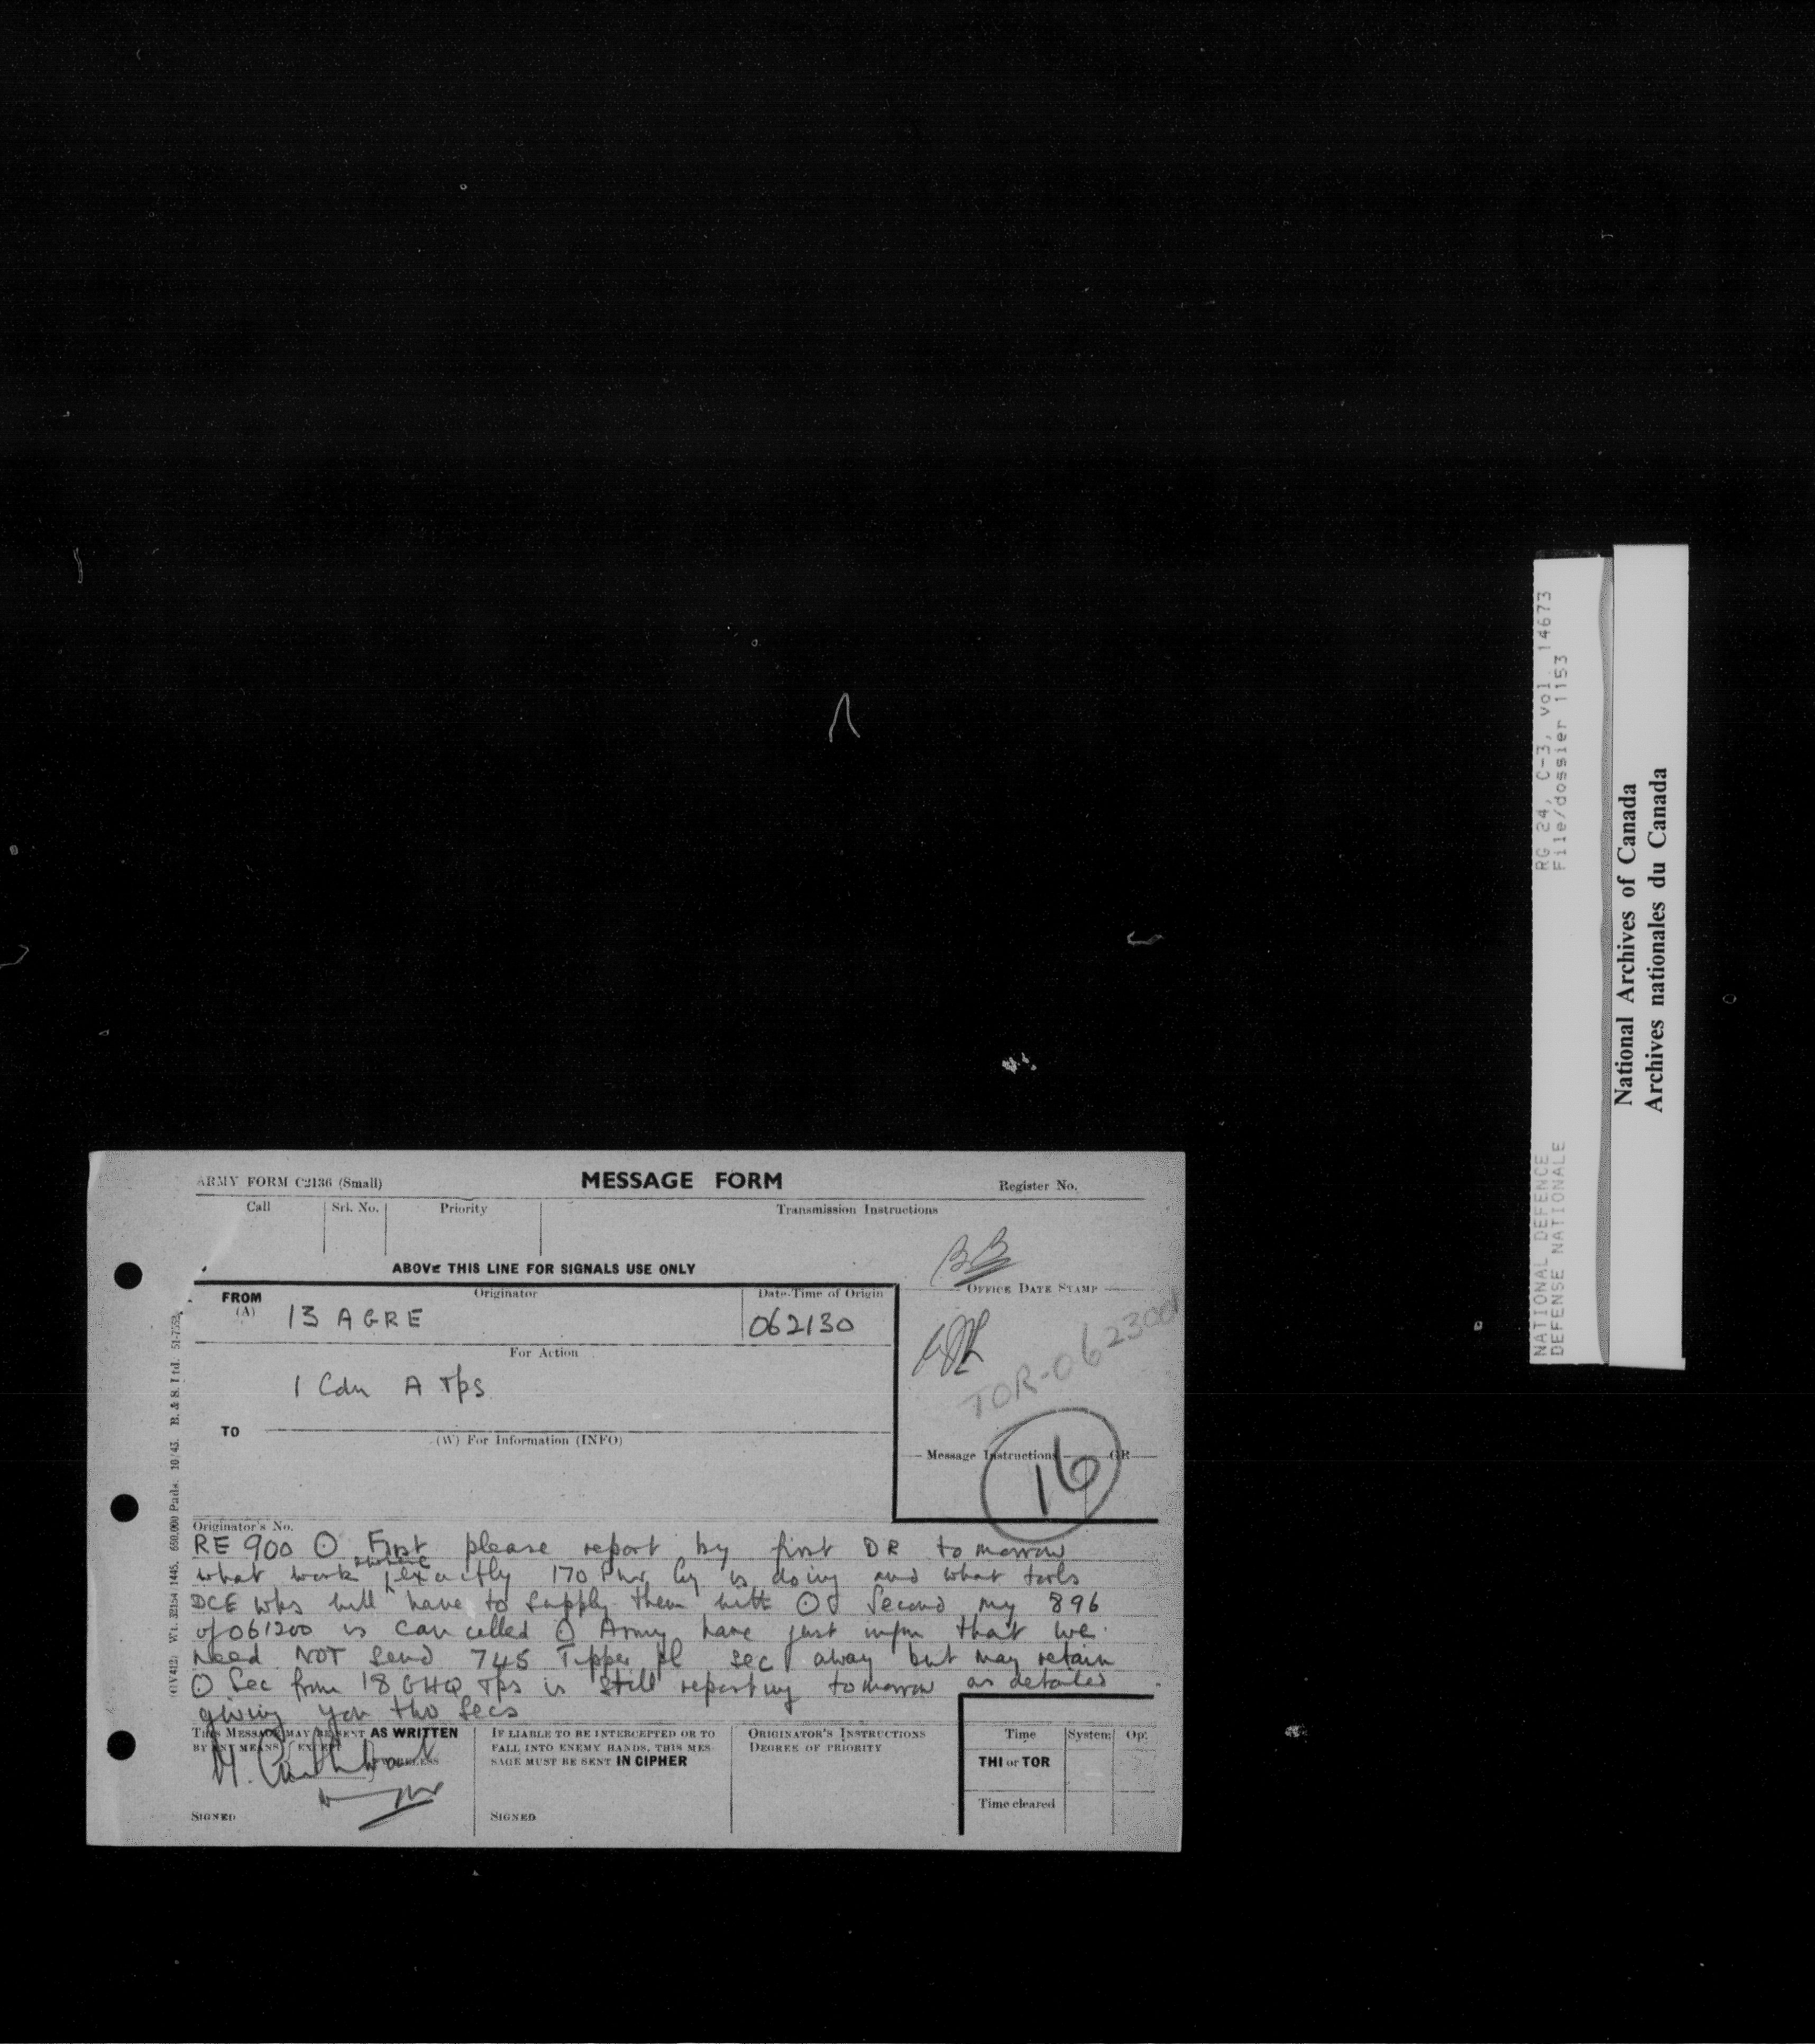 ARMY FORM C2136 (Small)
MESSAGE FORM
Register No.
Call
Srl. No.
Priority
Transmission Instructions
ABOVE THIS LINE FOR SIGNALS USE ONLY
BB
FROM
(A)
Originator
13 AGRE
Date-Time of Origin
062130
OFFICE DATE STAMP
TOR-062300
For Action
1 Cdn A Tps
TO
(W) For Information (INFO)
Message Instructions
GR
16
Originator's No.
RE 900 O First please report by first DR tomorrow
what work where exactly 170 Pnr Coy is doing and what tools
DCE wks will have to supply them with O Second my 896
of 061200 is cancelled O Army have just infm that we
need NOT send 745 Tipper pl sec away but may retain
O Sec from 18 GHQ Tps is still reporting tomorrow as detailed
giving you two secs
THIS MESSAGE MAY BE SENT AS WRITTEN
BY ANY MEANS EXCEPT
WIRELESS
SIGNED
IF LIABLE TO BE INTERCEPTED OR TO
FALL INTO ENEMY HANDS, THIS MES-
SAGE MUST BE SENT IN CIPHER
SIGNED
ORIGINATOR'S INSTRUCTIONS
DEGREE OF PRIORITY
Time
System
Op.
THI or TOR
Time cleared
Wt. 32154/1445. 650,000 Pads. 10/43. B. & S. Ltd.
RG 24, C-3, vol. 14673
File/dossier 1153
NATIONAL DEFENCE
DEFENSE NATIONALE
National Archives of Canada
Archives nationales du Canada